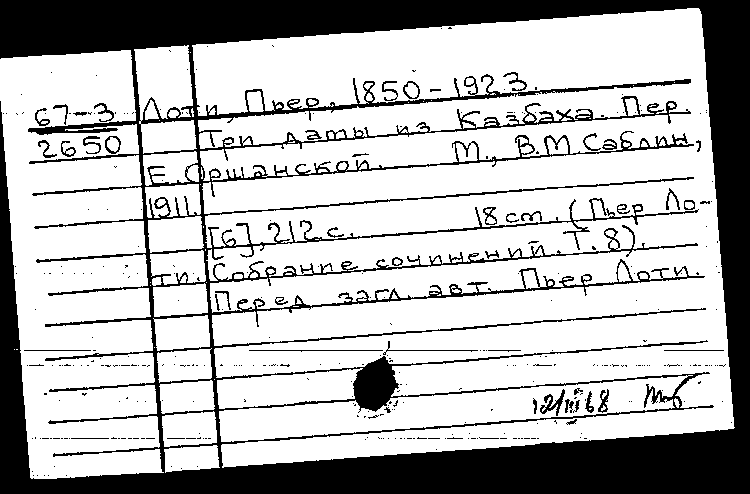 67-3 Лоти, Пьер, 1850-1923.
2650 Три дамы из Казбаха. Пер.
Е. Оршанской. М., В.М. Саблин,
1911.
[6], 212 с. 18 cm. (Пьер Ло-
ти. Собрание сочинений. Т. 8).
Перед загл. авт. Пьер Лоти.
12/III 68